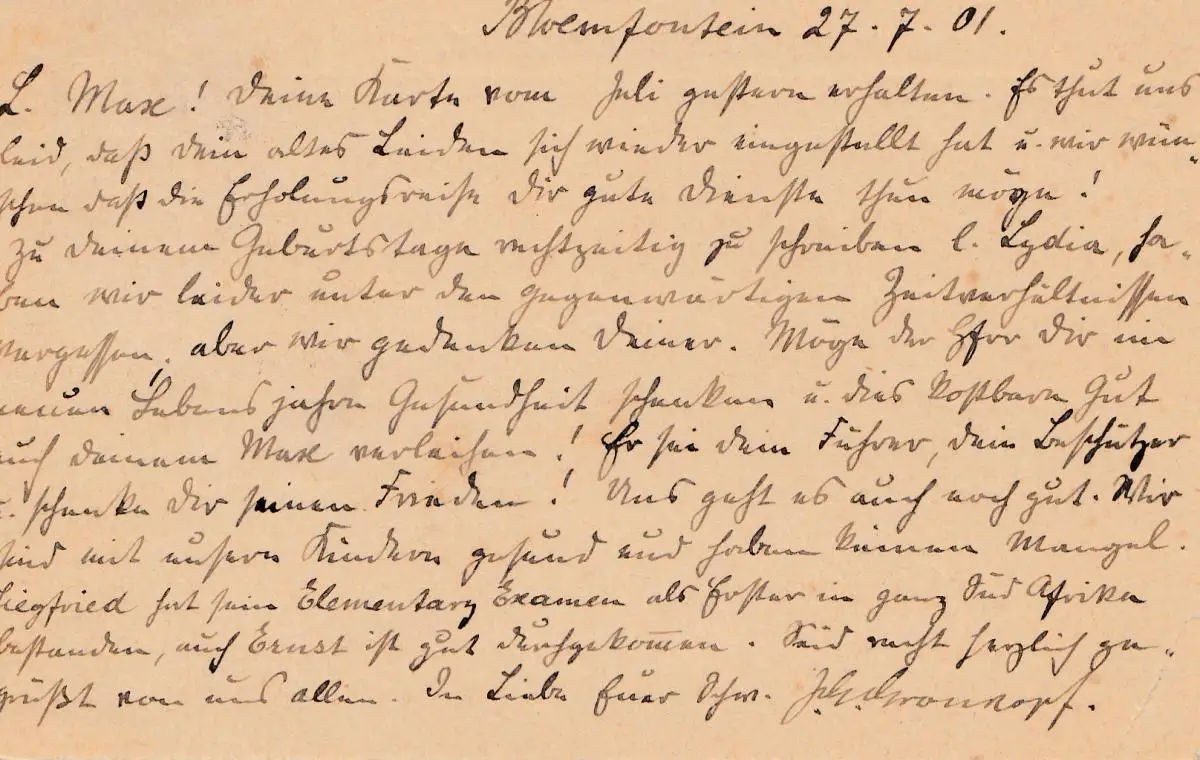 Bloemfontein 27.7.01.
L. Max! Deine Karte vom Juli gestern erhalten. Es thut uns
leid, daß dein altes Leiden sich wieder eingestellt hat u. wir wün-
schen daß die Erholungsreise dir gute Dienste thun möge!
Zu deinem Geburtstage rechtzeitig zu schreiben l. Lydia, ha-
ben wir leider unter den gegenwärtigen Zeitverhältnissen
vergessen, aber wir gedenken deiner. Möge der Herr dir im
neuen Lebensjahre Gesundheit schenken u. dies kostbare Gut
auch deinem Max verleihen! Er sei dein Führer, dein Beschützer
u. schenke dir seinen Frieden! Uns geht es auch noch gut. Wir
sind mit unsern Kindern gesund und haben keinen Mangel.
Siegfried hat sein Elementary Examen als Erster in ganz Süd Afrika
bestanden, auch Ernst ist gut durchgekom̅en. Seid recht herzlich ge-
grüßt von uns allen. In Liebe Euer Schw.